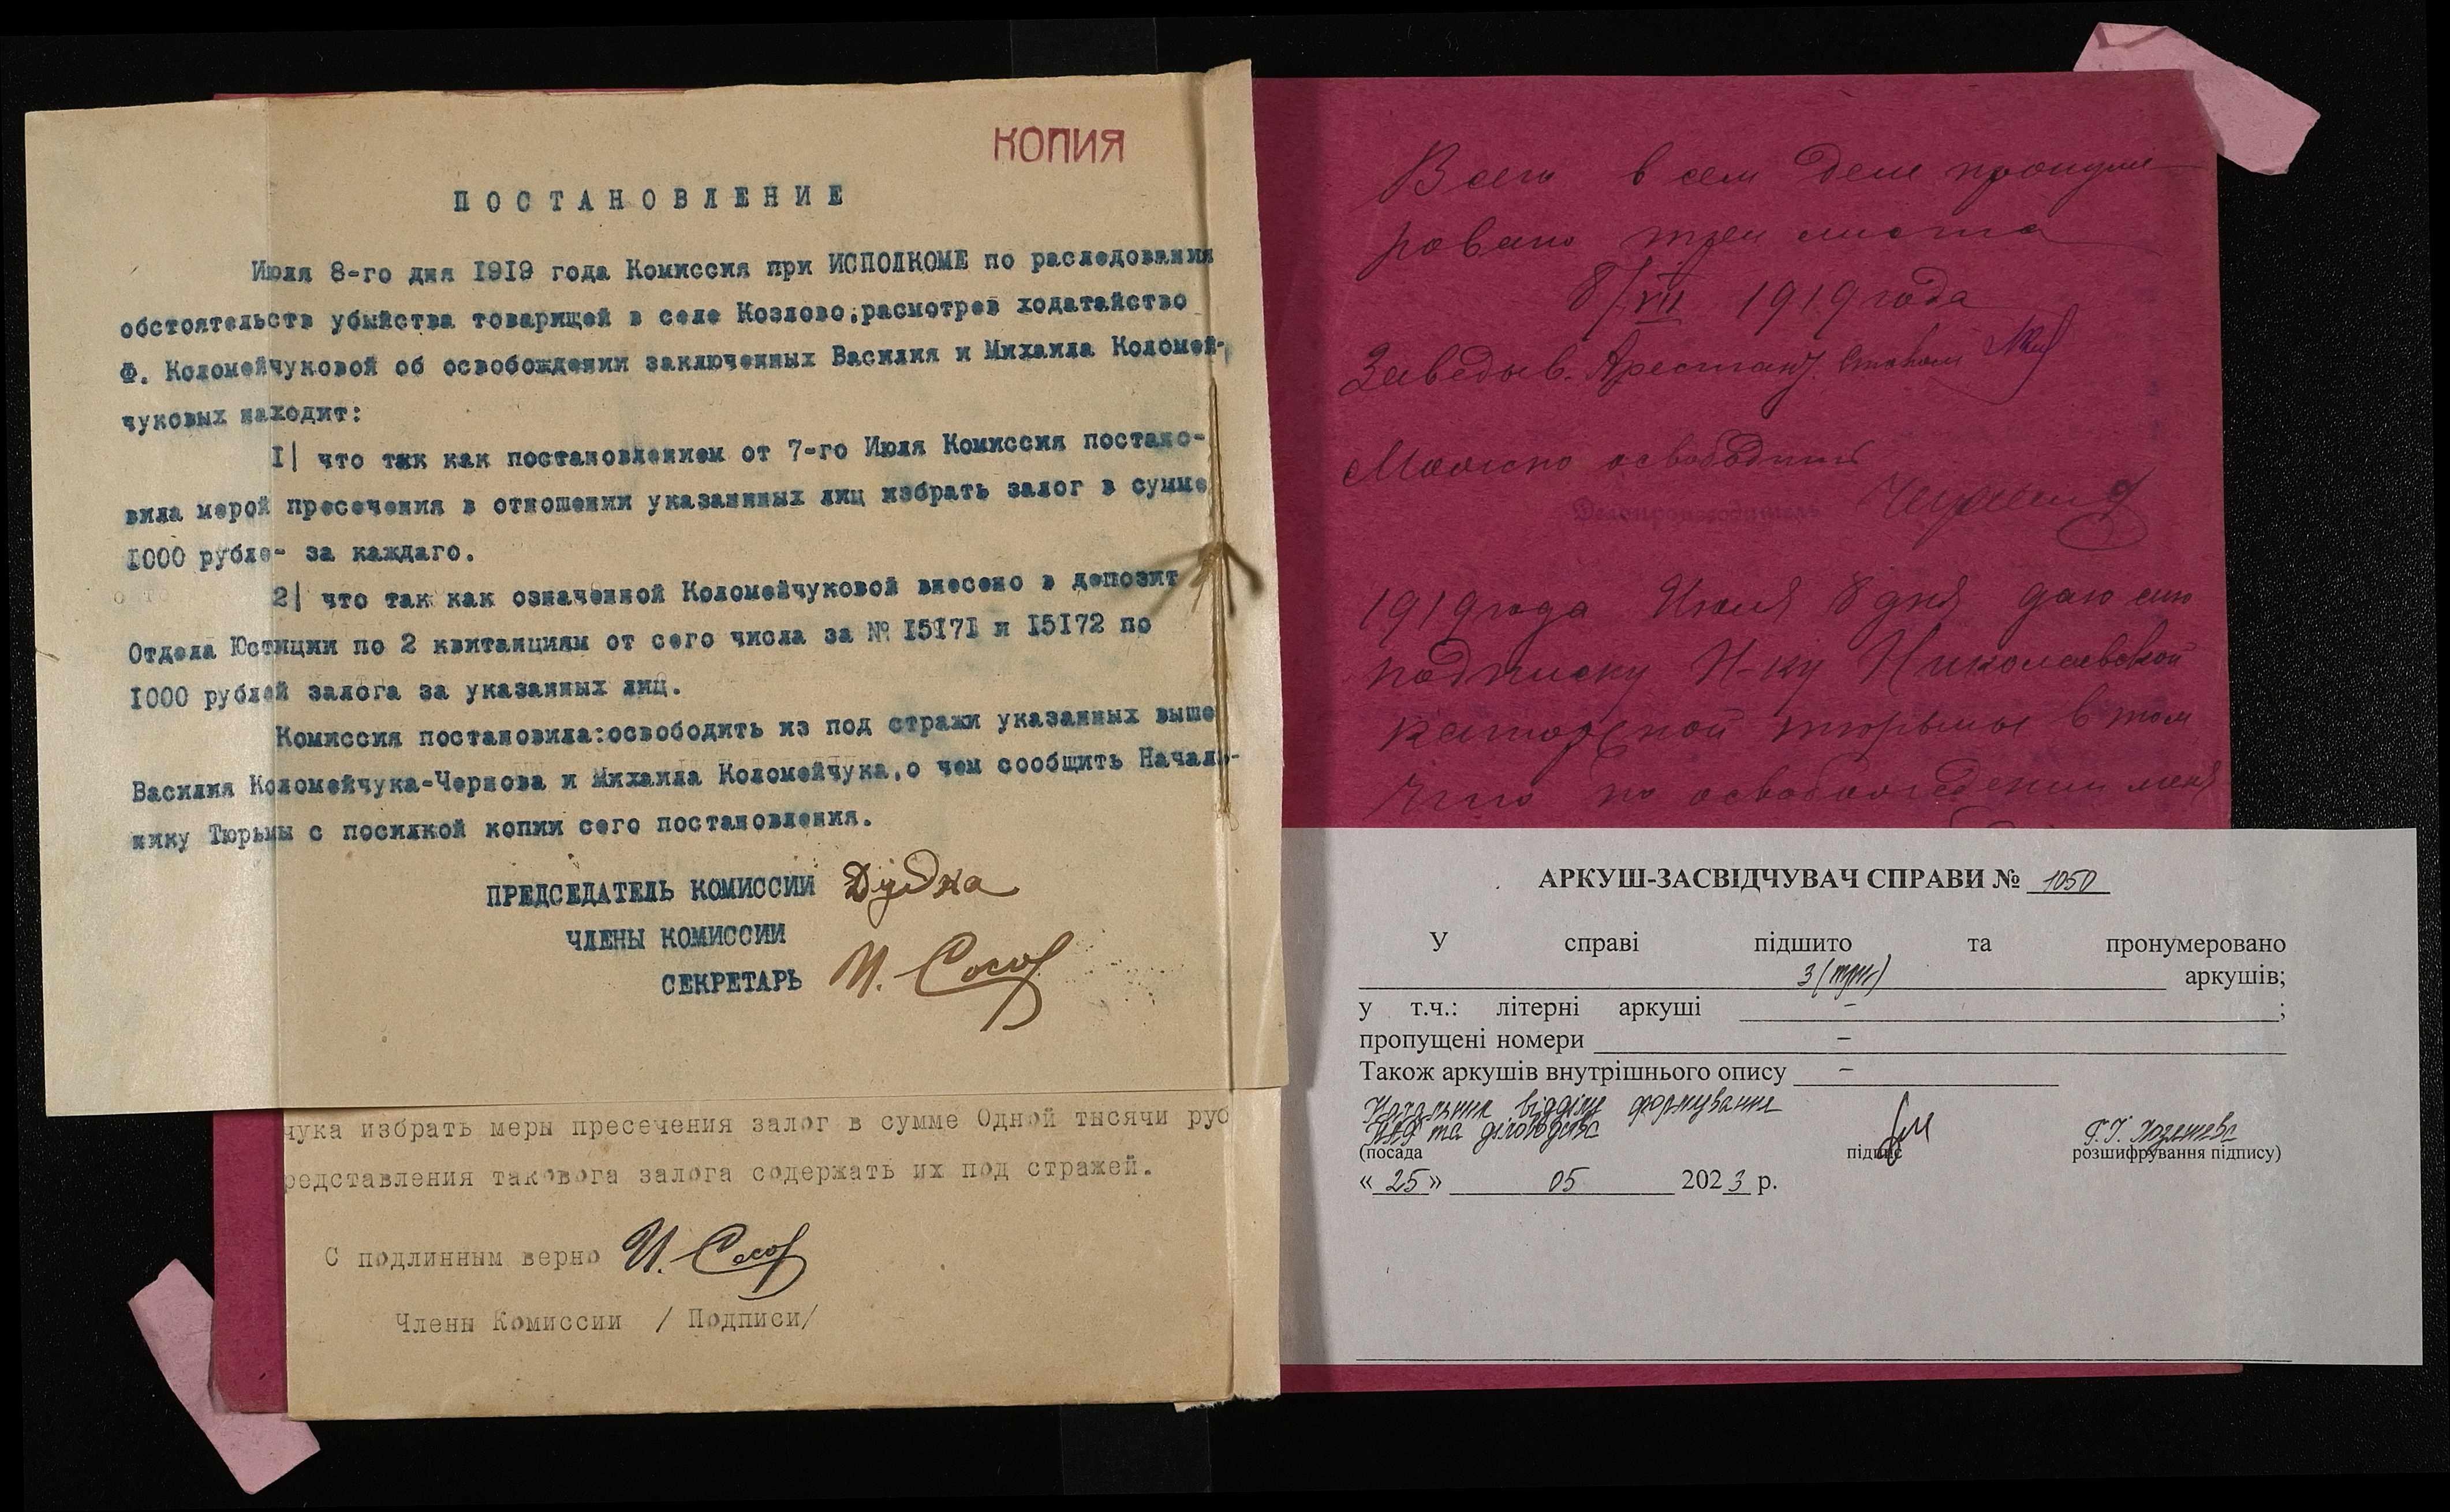 КОПИЯ
ПОСТАНОВЛЕНИЕ
Июля 8-го дня 1919 года Комиссия при ИСПОЛКОМЕ по раследования
обстоятельств убыйства товарищей в селе Козлово,расмотрев ходатайство
Ф. Коломейчуковой об освобождении заключенных Василия и Михаила Коломей-
чуковых находит:
1| что так как постановлением от 7-го Июля Комиссия постано-
вила мерой пресечения в отношении указаннных лиц избрать залог в сумме
1000 рубле- за каждаго.
2| что так как означенной Коломейчуковой внесено в депозит
Отдела Юстиции по 2 квитанциям от сего числа за № 15171 и 15172 по
1000 рублей залога за указанных лиц.
Комиссия постановила:освободить из под стражи указанных выше
Василия Коломейчука-Чернова и Михаила Коломейчука,о чем сообщить Началь-
нику Тюрьмы с посилкой копии сего постановления.
ПРЕДСЕДАТЕЛЬ КОМИССИИ Дудка
ЧЛЕНЫ КОМИССИИ
СЕКРЕТАРЬ И.
чука избрать меры пресечения залог в сумме Одной тысячи руб
редставления таковога залога содержать их под стражей.
С подлинным верно И.
Члены Комиссии / Подписи/
Всего в сем деле пронуме-
ровано три листа
8/VII 1919 года
Заведыв. Арестант. столом
Можно освободить
Делопроизводитель
1919 года Июля 8 дня даю сию
подписку Н-ку Николаевской
каторжной тюрьмы в том
что по освобождении меня
АРКУШ-ЗАСВІДЧУВАЧ СПРАВИ № 1050
У справі підшито та пронумеровано
3 (три) аркушів;
у т.ч.: літерні аркуші – ;
пропущені номери –
Також аркушів внутрішнього опису –
Начальник відділу формування
НАФ та діловодства
(посада підпис розшифрування підпису)
« 25 » 05 2023 р.